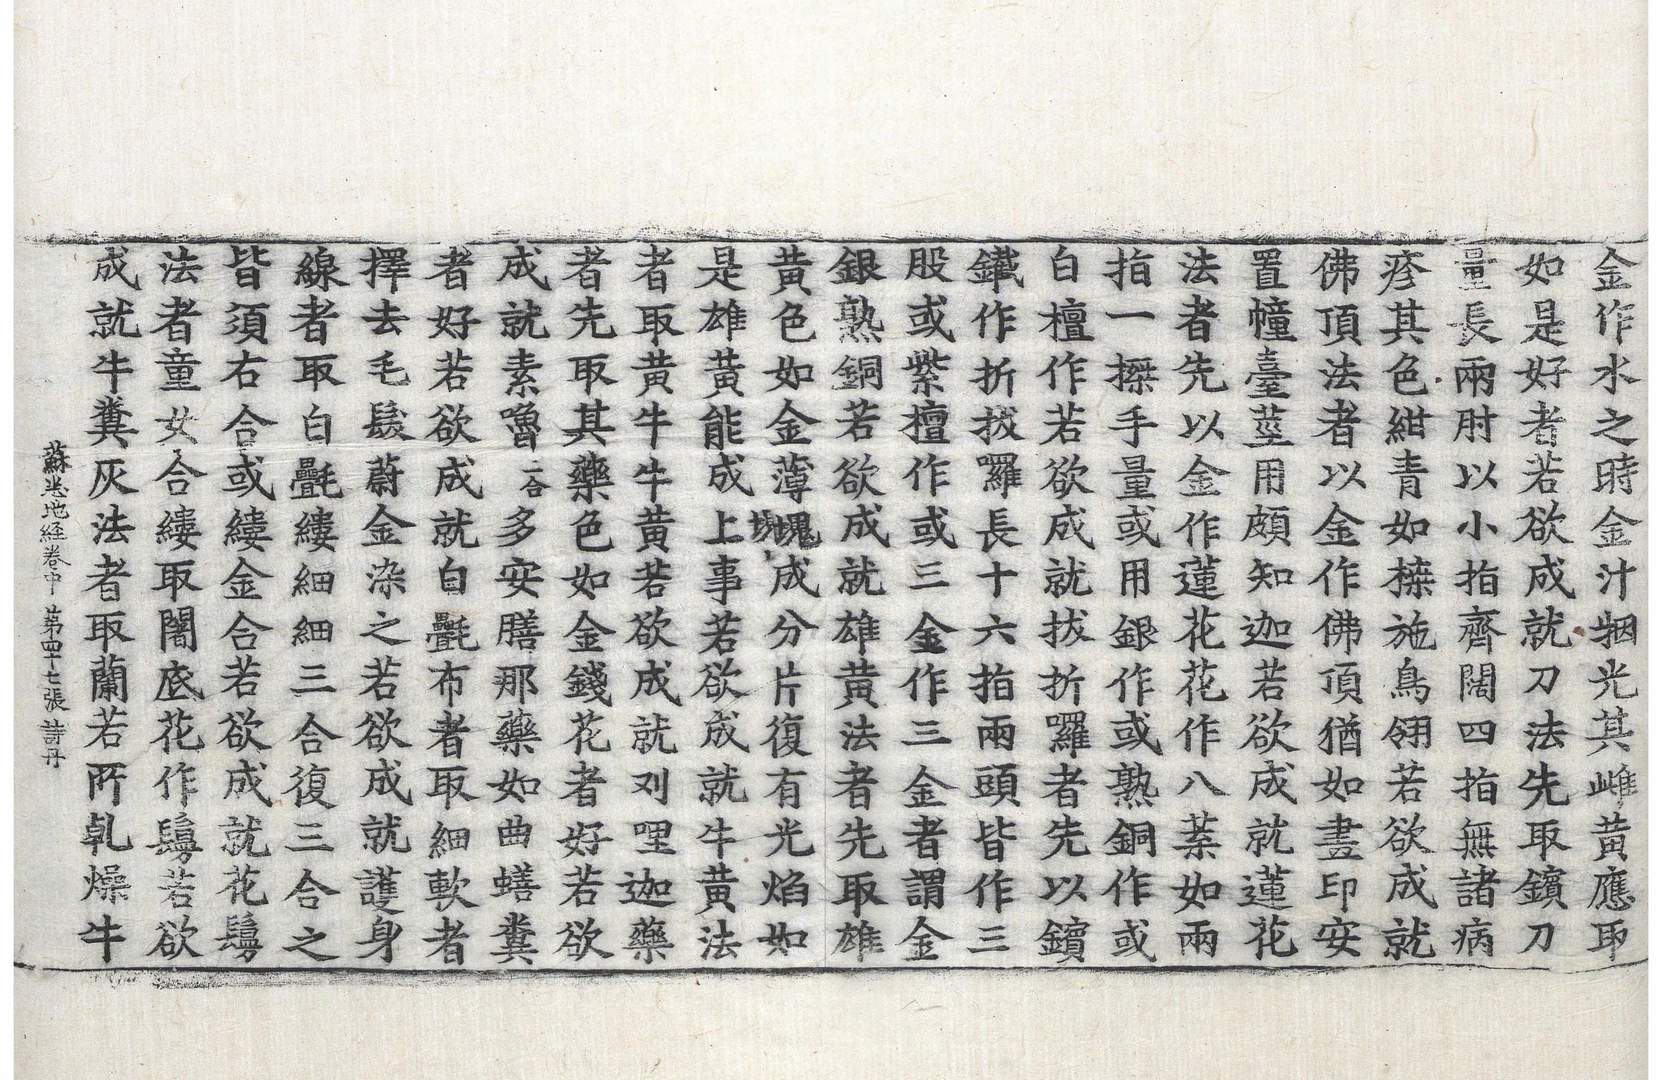 金作水之時金汁㧢光其雌黃應取
如是好者若欲成就刀法先取鑌刀
量長兩肘以小指齊闊四指無諸病
疹其色紺青如㯃施鳥翎若欲成就
佛頂法者以金作佛頂猶如畫印安
置幢臺莖用頗知迦若欲成就蓮花
法者先以金作蓮花花作八葉如兩
指一搩手量或用銀作或熟銅作或
白檀作若欲成就拔折囉者先以鑌
鐵作折拔囉長十六指兩頭皆作三
股或紫檀作或三金作三金者謂金
銀熟銅若欲成就雄黃法者先取雄
黃色如金薄塊塊成分片復有光焰如
是雄黃能成上事若欲成就牛黃法
者取黃牛牛黃若欲成就刈哩迦藥
者先取其藥色如金錢花者好若欲
成就素嚕二合多安膳那藥如曲蟮糞
者好若欲成就白㲲布者取細軟者
擇去毛髮蔚金染之若欲成就護身
線者取白㲲縷細細三合復三合之
皆須右合或縷金合若欲成就花鬘
法者童女合縷取闍底花作鬘若欲
成就牛糞灰法者取蘭若所乹燥牛
蘇悉地経卷中 苐四十七張 詩 丹